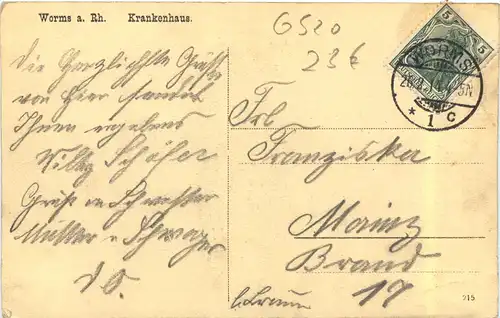 Worms a. Rh. Krankenhaus.
GS20
23€
5 5
WORMS
* 1 c
Die Herzlichste Grüße
von hier sendet
Ihnen ergebens
Willy Schäfer
Gruß an Schwester
Mutter u Schwager
d O.
Frl
Franziska
Mainz
Brand
19
215